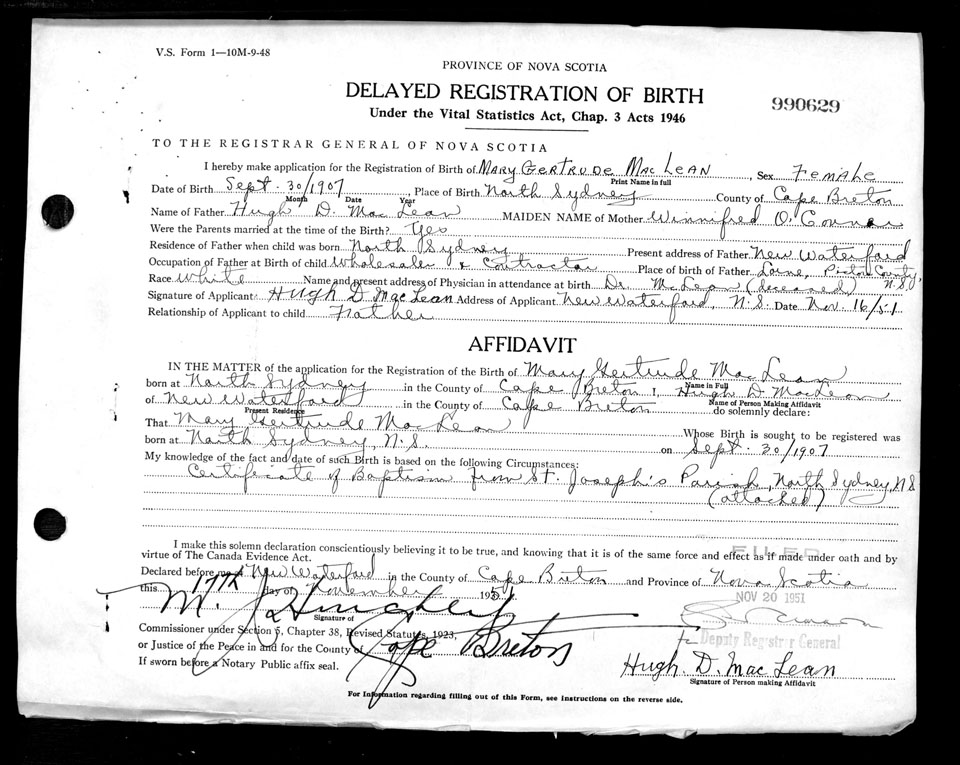 V.S. Form 1—10M-9-48
PROVINCE OF NOVA SCOTIA
DELAYED REGISTRATION OF BIRTH
990629
Under the Vital Statistics Act, Chap. 3 Acts 1946
TO THE REGISTRAR GENERAL OF NOVA SCOTIA
I hereby make application for the Registration of Birth of Mary Gertrude MacLean, Sex Female
Print Name in full
Date of Birth Sept. 30/1907, Place of Birth North Sydney County of Cape Breton
Month Date Year
Name of Father Hugh D. MacLean MAIDEN NAME of Mother Winnifred O'Connor
Were the Parents married at the time of the Birth? Yes
Residence of Father when child was born North Sydney Present address of Father New Waterford
Occupation of Father at Birth of child Wholesaler & Contractor Place of birth of Father Lorne, Pictou County, N.S.
Race White Name and present address of Physician in attendance at birth Dr. McLean (deceased)
Signature of Applicant Hugh D. MacLean Address of Applicant New Waterford, N.S. Date Nov. 16/51
Relationship of Applicant to child Father
AFFIDAVIT
IN THE MATTER of the application for the Registration of the Birth of Mary Gertrude MacLean
Name in Full
born at North Sydney in the County of Cape Breton I, Hugh D MacLean
Name of Person Making Affidavit
of New Waterford in the County of Cape Breton do solemnly declare:
Present Residence
That Mary Gertrude MacLean Whose Birth is sought to be registered was
born at North Sydney, N.S. on Sept. 30/1907
My knowledge of the fact and date of such Birth is based on the following Circumstances:
Certificate of Baptism from St. Joseph's Parish, North Sydney, N.S
(attached)
I make this solemn declaration conscientiously believing it to be true, and knowing that it is of the same force and effect as if made under oath and by
virtue of The Canada Evidence Act.
FILED
Declared before me at New Waterford in the County of Cape Breton and Province of Nova Scotia
this 17th day of November 1951
NOV 20 1951
M. J.
Signature of
Deputy Registrar General
Commissioner under Section 5, Chapter 38, Revised Statutes, 1923,
or Justice of the Peace in and for the County of Cape Breton
If sworn before a Notary Public affix seal.
Hugh D. MacLean
Signature of Person making Affidavit
For Information regarding filling out of this Form, see Instructions on the reverse side.